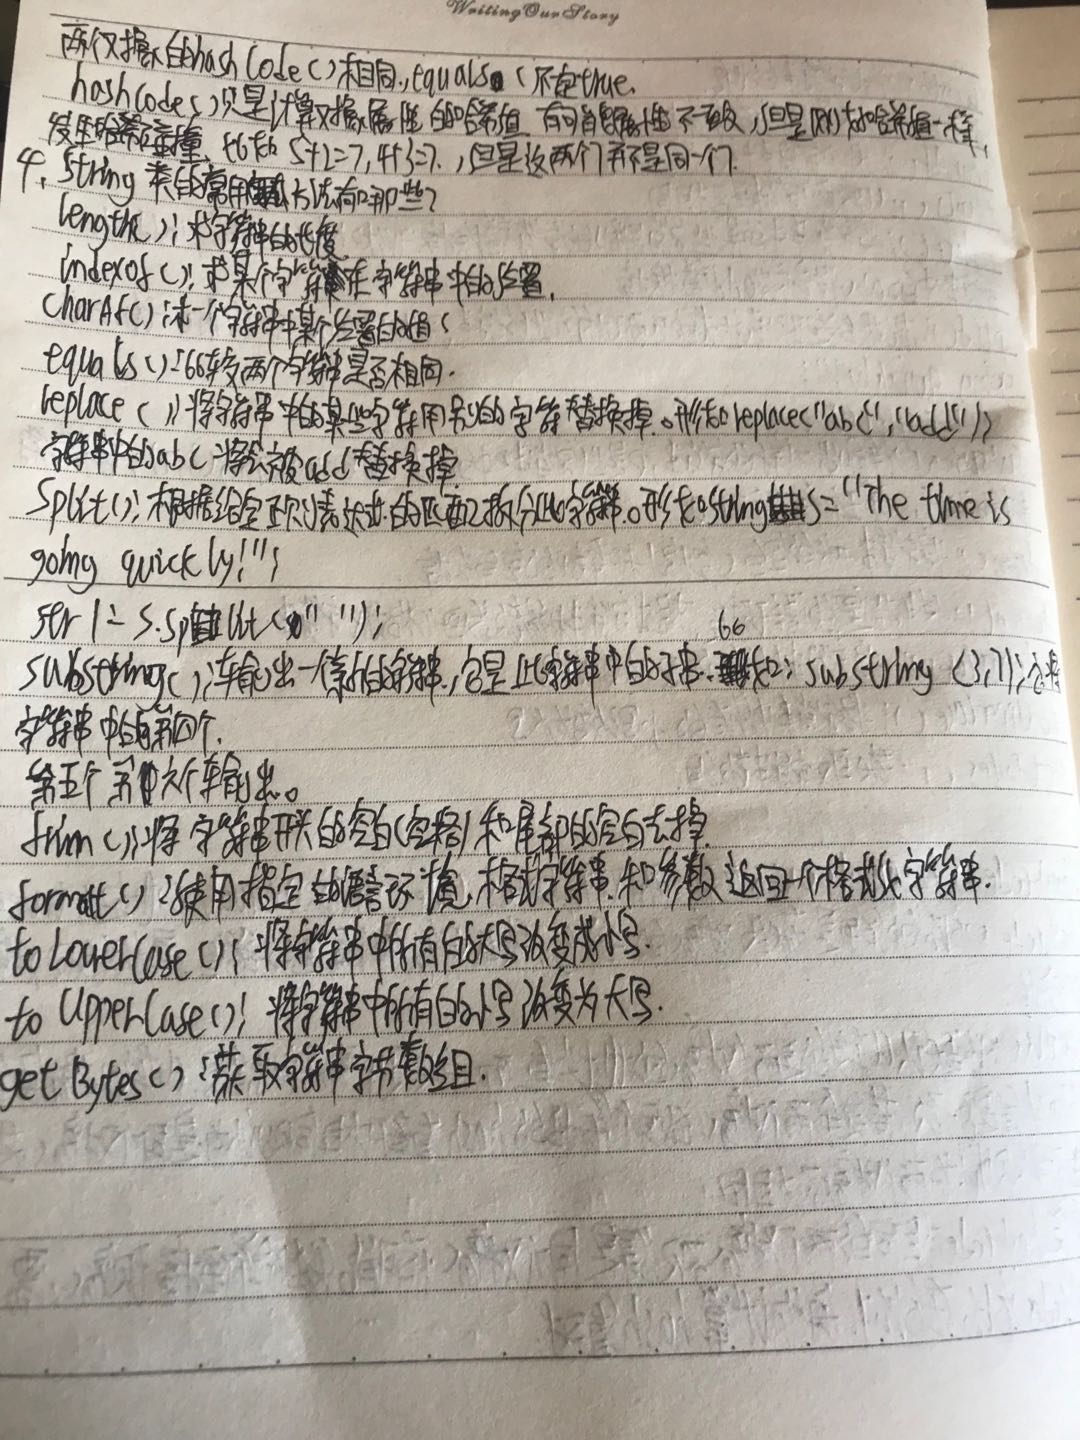 WritingOurStory
两个对象的hashCode()相同,equals()不一定true.
hashCode()只是计算对象属性的哈希值 有可能属性不一致,但是计算的哈希值一样,
发生哈希碰撞.比如5+2=7,4+3=7,但是这两个7并不是同一个7.
4. String 类的常用方法有哪些?
length();求字符串的长度
indexof();求某个字符在字符串中的位置.
charAt();求一个字符串中某个位置的值
equals();比较两个字符串是否相同.
replace();将字符串中的某些字符用别的字符替换掉。形如replace("abc","add");
字符串中的abc将会被add替换掉.
split();根据给定正则表达式的匹配拆分此字符串。形如string s="The time is
going quickly!";
str1=s.split(" ");
substring();输出一个新的字符串,它是此字符串中的子串.比如:substring(3,7);它将
字符串中的第四个.
第五个第六个输出。
trim();将字符串开头的空白(空格)和尾部的空白去掉.
format();使用指定的语言环境,格式字符串.和参数返回一个格式化字符串.
toLowerCase();将字符串中所有的大写改变成小写.
to UpperCase();将字符串中所有的小写改变为大写.
getBytes();获取字符串字节数组.